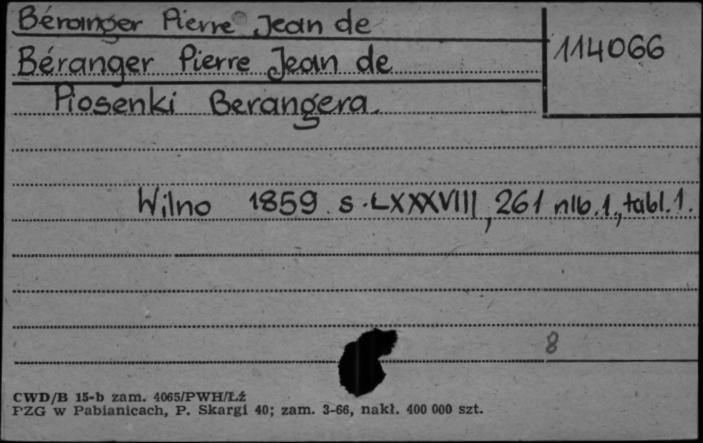 Béranger Pierre Jean de
114066
Béranger Pierre Jean de
Piosenki Berangera.
Wilno 1859 s. LXXXVIII, 261 nlb. 1., tabl. 1.
8
CWD/B 15-b zam. 4065/PWH/Łź
PZG w Pabianicach, P. Skargi 40; zam. 3-66, nakł. 400 000 szt.